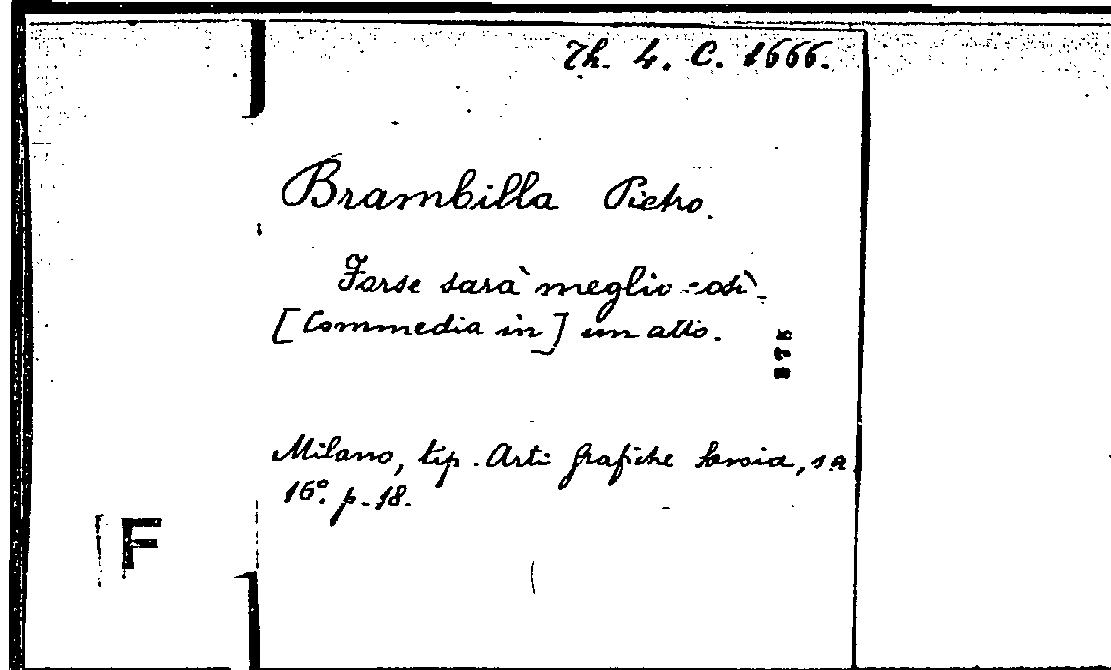 Th. 4. C. 1666.
Brambilla Pietro.
Forse sarà meglio così.
[Commedia in] un atto.
Milano, tip. Arti grafiche Savoia, s a
16°. p. 18.
F